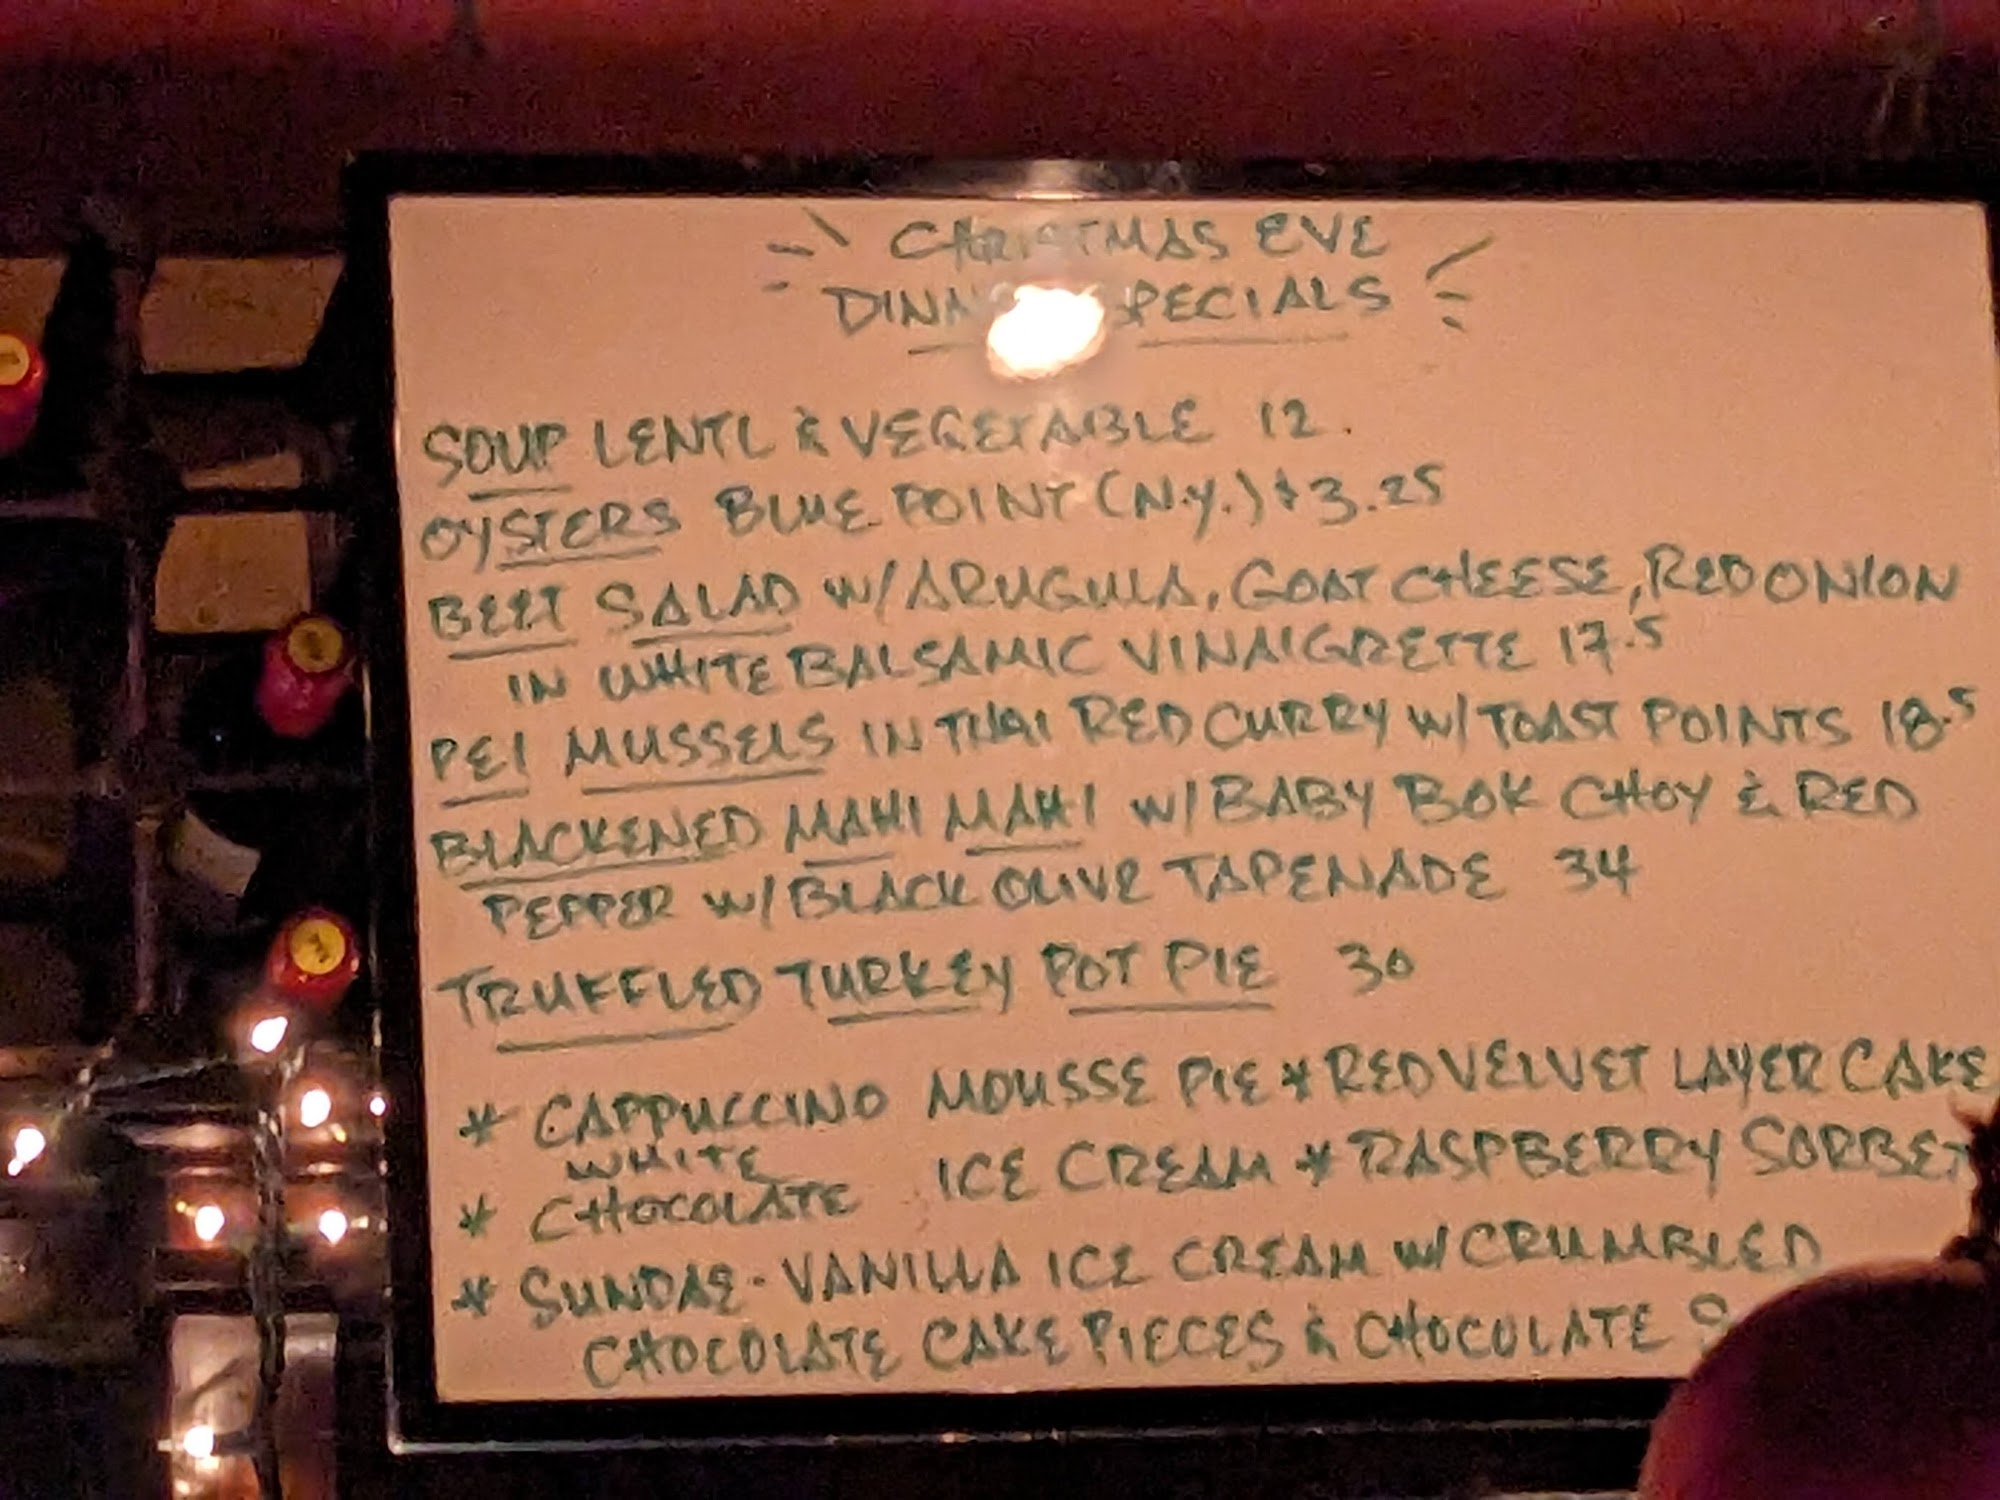 CHRISTMAS EVE
DINNER SPECIALS
SOUP LENTL & VEGETABLE 12.
OYSTERS BLUE POINT (N.Y.) $3.25
BEET SALAD W/ARUGULA, GOAT CHEESE, RED ONION
IN WHITE BALSAMIC VINAIGRETTE 17.5
PEI MUSSELS IN THAI RED CURRY W/TOAST POINTS 18.5
BLACKENED MAHI MAHI W/BABY BOK CHOY & RED
PEPPER W/BLACK OLIVE TAPENADE 34
TRUFFLED TURKEY POT PIE 30
* CAPPUCCINO MOUSSE PIE * RED VELVET LAYER CAKE
* WHITE CHOCOLATE ICE CREAM * RASPBERRY SORBET
* SUNDAE - VANILLA ICE CREAM W/CRUMBLED
CHOCOLATE CAKE PIECES & CHOCOLATE